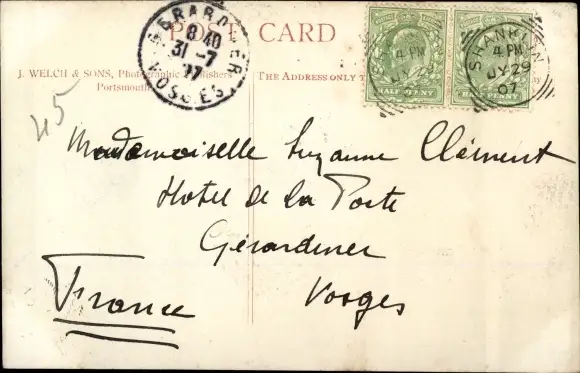 POST CARD
GERARDMER
8 40
31 -7
07
VOSGES
J. WELCH & SONS, Photographic Publishers
Portsmouth
THE ADDRESS ONLY T
HALF PENNY
HALF PENNY
4 PM
SHANKLIN
4 PM
JY 29
07
45
Mademoiselle Suzanne Clément
Hotel de la Poste
Gérardmer
Vosges
France